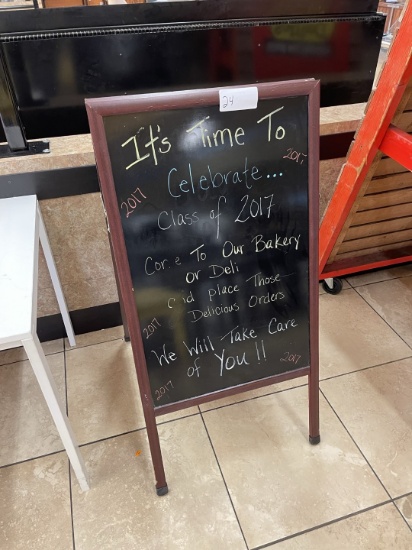 24
It's Time To
Celebrate...
2017
Class of 2017
2017
Come To Our Bakery
or Deli
and place Those
Delicious Orders
2017
We Will Take Care
of You!!
2017
2017